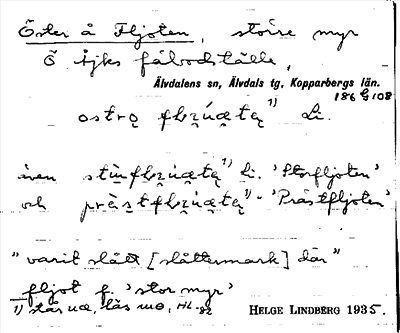 Öster å Fljoten, större myr
Ö Åjks fäbodställe,
Älvdalens sn, Älvdals tg, Kopparbergs län.
186 G 108
ostro̧ 1) Li.
även 1) Li. 'Storfljoten'
och 1) - 'Prästfljoten'
"varit slått [slåttermark] där"
fljot f. 'stor myr'
1) står uæ, läs uo, HL-82
HELGE LINDBERG 1935.